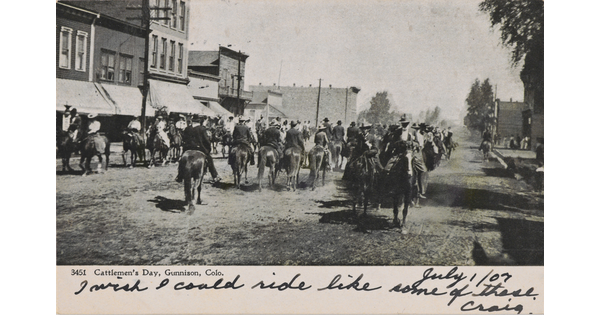 3451 Cattlemen's Day, Gunnison, Colo.
July 1/07
I wish I could ride like some of these.
Craig.